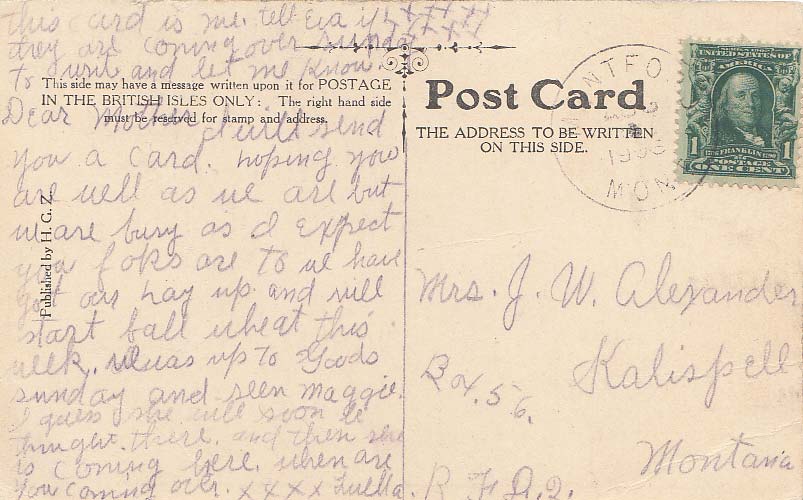 this card is me. tell Eva if x x x x x
they are coming over sunday x x x x
to write and let me know.
This side may have a message written upon it for POSTAGE
IN THE BRITISH ISLES ONLY: The right hand side
must be reserved for stamp and address.
Dear Mother I will send
you a card. hoping you
are well as we are but
we are busy as I Expect
you foks are to we have
got our hay up and will
start fall wheat this
week. was up to Goods
sunday and seen Maggie.
I guess she will soon be
there, and then she
is coming here. when are
you coming over. x x x x Luella.
Published by H. G. Z.
Post Card
THE ADDRESS TO BE WRITTEN
ON THIS SIDE.
MONTFORD
MONT
UNITED STATES OF
AMERICA
1 FRANKLIN 1
POSTAGE
ONE CENT
Mrs. J. W. Alexander
Kalispell
Box. 56.
Montana
R F D. 2.